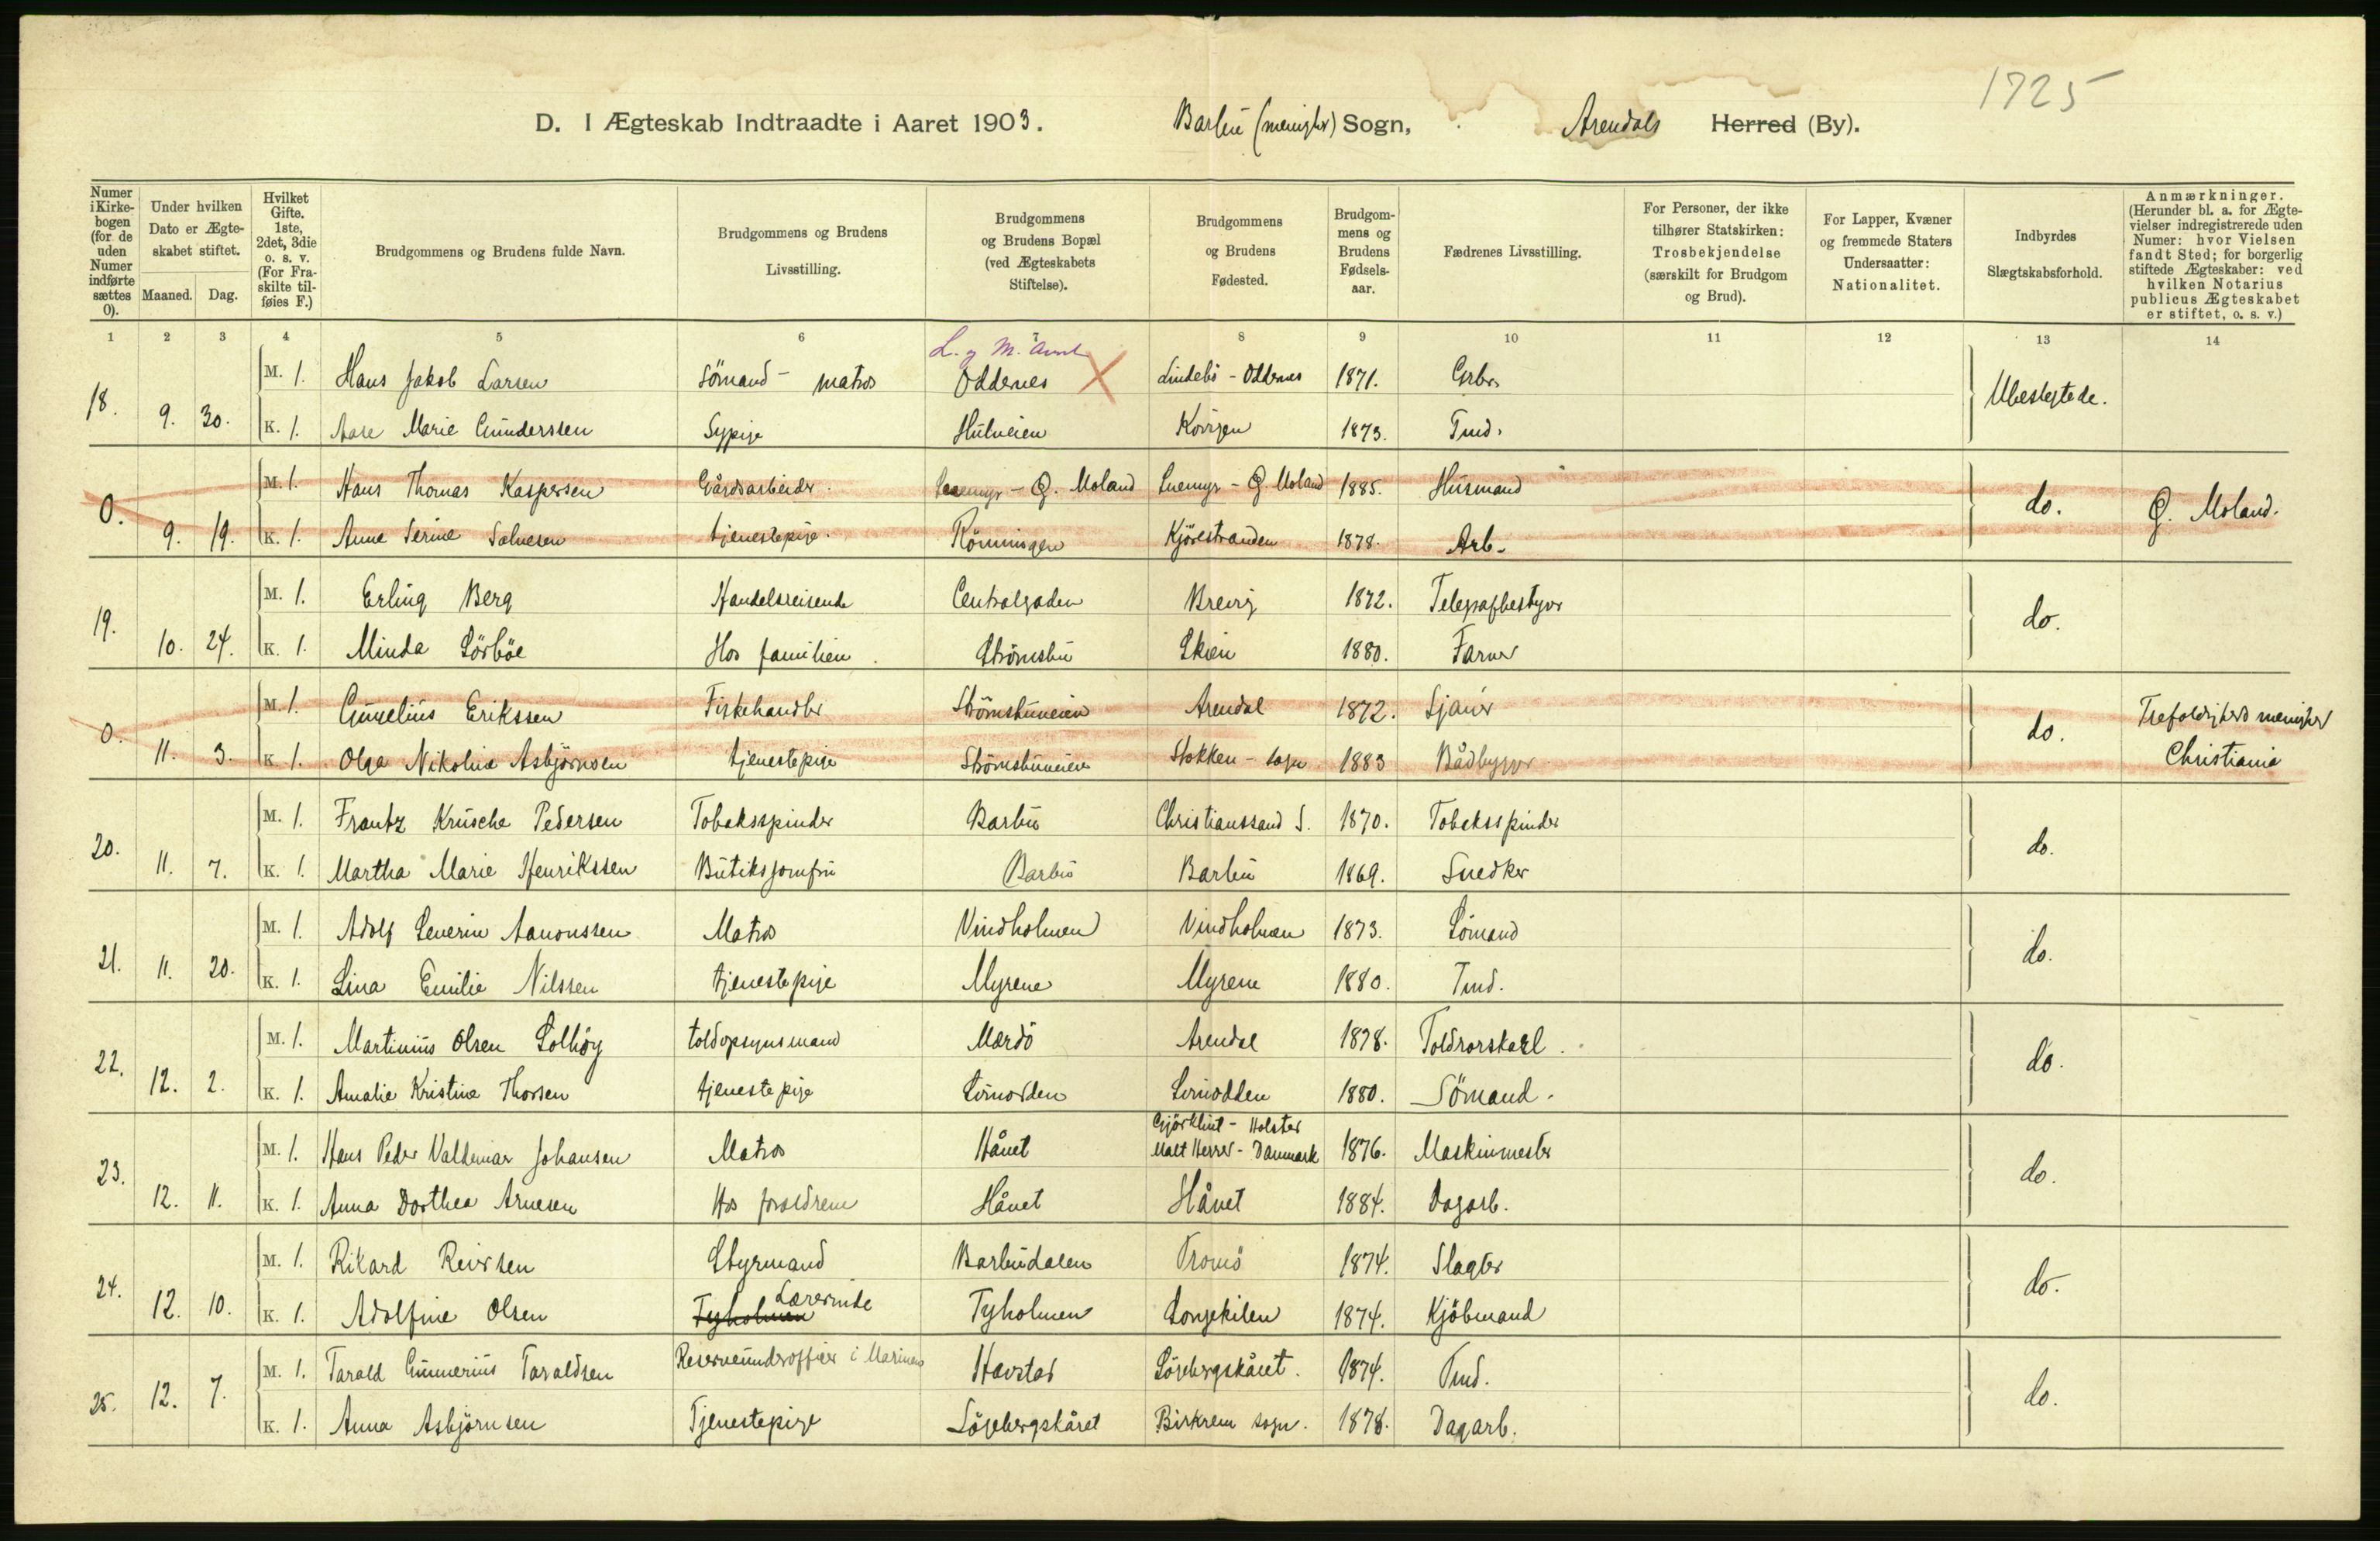 1725
D. I Ægteskab Indtraadte i Aaret 1903. Barbu (menighed) Sogn, Arendals Herred (By).
Numer i Kirkebogen (for de uden Numer indførte sættes 0). | Under hvilken Dato er Ægteskabet stiftet. Maaned. Dag. | Hvilket Gifte. 1ste, 2det, 3die o. s. v. (For Fraskilte tilføies F.) | Brudgommens og Brudens fulde Navn. | Brudgommens og Brudens Livsstilling. | Brudgommens og Brudens Bopæl (ved Ægteskabets Stiftelse). | Brudgommens og Brudens Fødested. | Brudgommens og Brudens Fødselsaar. | Fædrenes Livsstilling. | For Personer, der ikke tilhører Statskirken: Trosbekjendelse (særskilt for Brudgom og Brud). | For Lapper, Kvæner og fremmede Staters Undersaatter: Nationalitet. | Indbyrdes Slægtskabsforhold. | Anmærkninger. (Herunder bl. a. for Ægtevielser indregistrerede uden Numer: hvor Vielsen fandt Sted; for borgerlig stiftede Ægteskaber: ved hvilken Notarius publicus Ægteskabet er stiftet, o. s. v.)
1 2 3 4 5 6 7 8 9 10 11 12 13 14
L. og M. Amt
18. M. 1. Hans Jakob Larsen Sömand - matros Oddernes Lindebö - Oddernes 1871. Grbr. Ubeslegtede.
9. 30. K. 1. Aase Marie Gunderssen Sypige Hulveien Kovigen 1873. Tmd.
0. M. 1. Hans Thomas Kaspersen Gårdsarbeider. - Ø. Moland Snemyr - Ø. Moland 1885. Husmand do. Ø. Moland.
9. 19. K. 1. Anne Serine Salvesen tjenestepige. Rönningen Kjörestranden 1878. Arb.
19. M. 1. Erling Berg Handelsreisende Centralgaden Brevig 1872. Telegrafbestyrer do.
10. 24. K. 1. Minda Sörböe Hos familien. Strömsbu Skien 1880. Farver
0. M. 1. Gunelius Erikssen Fiskehandler Strömsbuveien Arendal 1872. Sjauer do. Trefoldigheds menighed
11. 3. K. 1. Olga Nikoline Asbjörnsen tjenestepige Strömsbuveien Stokken - sogn 1883 Bådbygger Christiania
20. M. 1. Frantz Krusche Pedersen Tobaksspinder Barbu Christianssand S. 1870. Tobaksspinder do.
11. 7. K. 1. Martha Marie Henrikssen Butiksjomfru Barbu Barbu 1869. Snedker
21. M. 1. Adolf Severin Aanonssen Matros Vindholmen Vindholmen 1873. Sömand do.
11. 20. K. 1. Lina Emilie Nilssen tjenestepige Myrene Myrene 1880. Tmd.
22. M. 1. Martinius Olsen Solhöy toldopsynsmand Mærdö Arendal 1878. Toldrorskarl. do.
12. 2. K. 1. Amalie Kristine Thorsen tjenestepige 1880. Sömand.
23. M. 1. Hans Peder Valdemar Johansen Matros Hånet Gjörklint - Holsted
Malt Herred - Danmark 1876. Maskinmester do.
12. 11. K. 1. Anna Dorthea Arnesen Hos forældrene Hånet Hånet 1884. Dagarb.
24. M. 1. Rikard Reiersen Styrmand Barbudalen Tromö 1874. Slagter do.
12. 10. K. 1. Adolfine Olsen Tyholmen Lærerinde Tyholmen Songekilen 1874. Kjöbmand
25. M. 1. Tarald Gunnerius Taraldsen Reserveunderofficer i Marinen Havstad Löjebergskåret. 1874. Tmd. do.
12. 7. K. 1. Anna Asbjörnsen Tjenestepige Löjebergskåret Birkrem sogn. 1878. Dagarb.